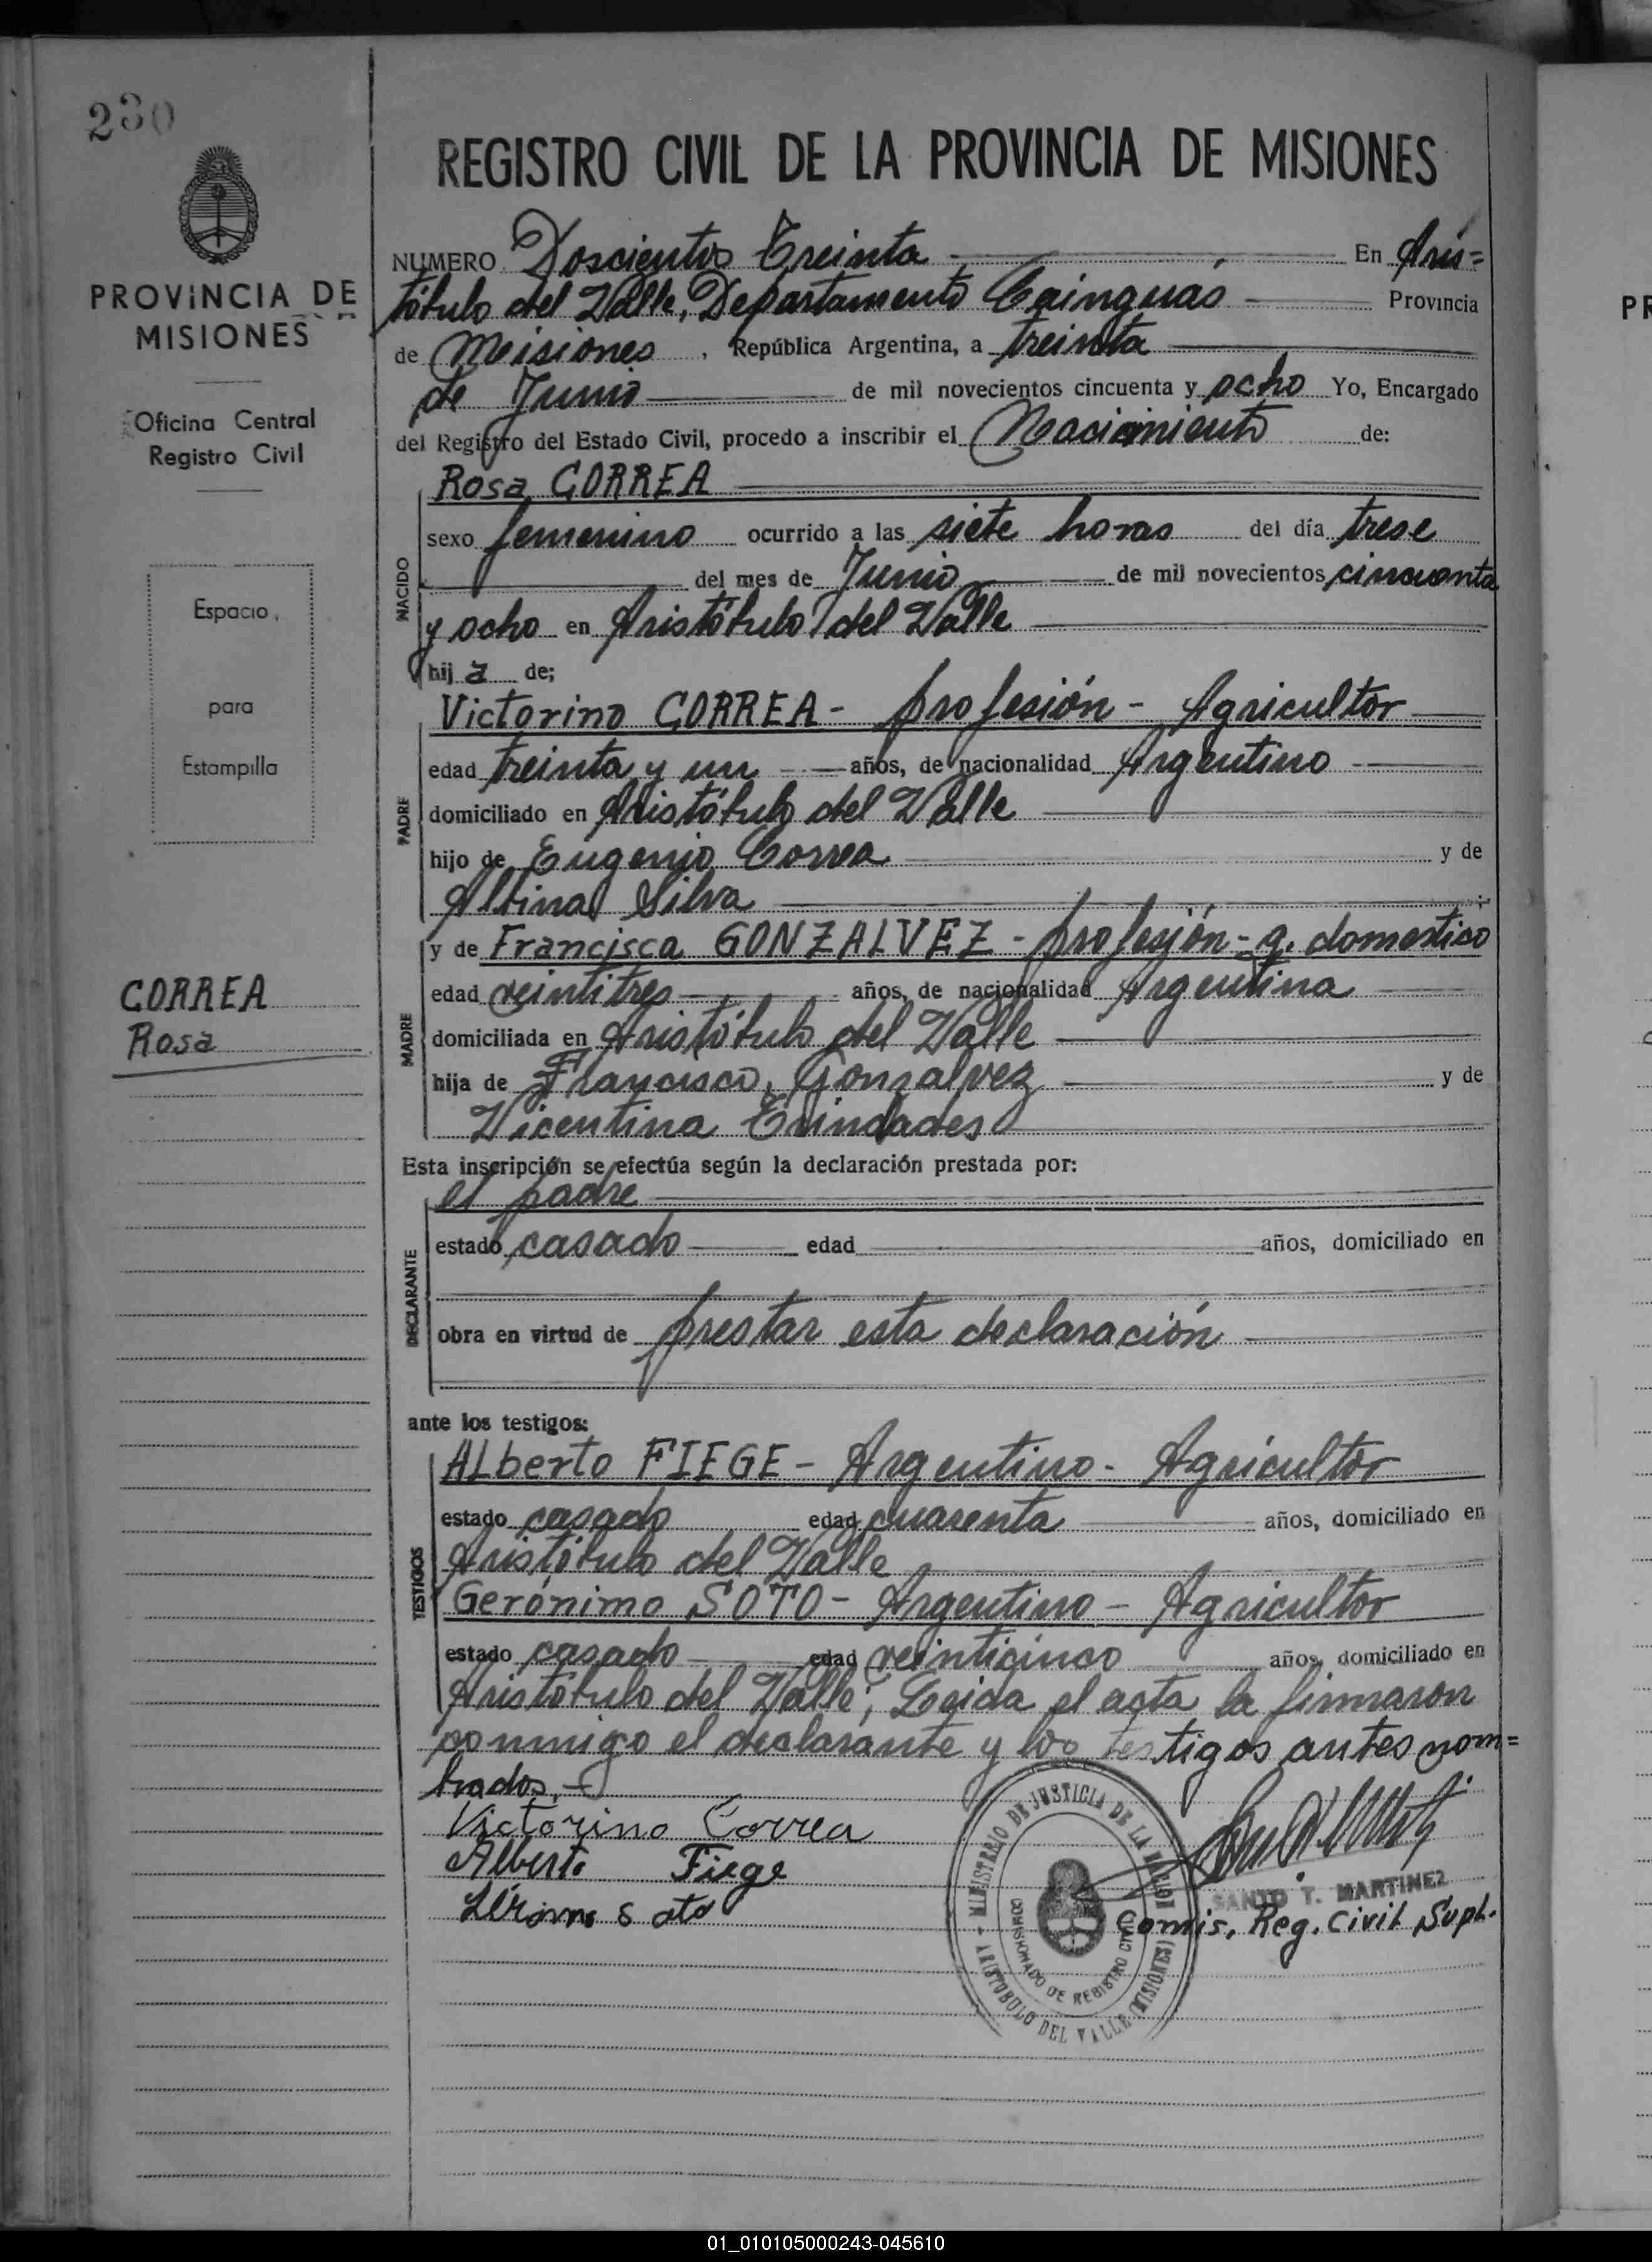 230
PROVINCIA DE
MISIONES
Oficina Central
Registro Civil
Espacio
para
Estampilla
CORREA
Rosa
REGISTRO CIVIL DE LA PROVINCIA DE MISIONES
NUMERO Doscientos Treinta En Aris=
tótulo del Valle, Departamento Cainguás Provincia
de Misiones, República Argentina, a treinta
de Junio de mil novecientos cincuenta y ocho Yo, Encargado
del Registro del Estado Civil, procedo a inscribir el Nacimiento de:
Rosa CORREA
NACIDO
sexo femenino ocurrido a las siete horas del día trese
del mes de Junio de mil novecientos cincuenta
y ocho en Aristótulo del Valle
hija de;
PADRE
Victorino CORREA - profesión - Agricultor
edad treinta y un años, de nacionalidad Argentino
domiciliado en Aristótulo del Valle
hijo de Eugenio Correa y de
Albina Silva
MADRE
y de Francisca GONZALVEZ - profesión - q. domestico
edad veintitres años, de nacionalidad Argentina
domiciliada en Aristótulo del Valle
hija de Francisco Gonzalvez y de
Vicentina Trindades
Esta inscripción se efectúa según la declaración prestada por:
DECLARANTE
el padre
estado casado edad años, domiciliado en
obra en virtud de prestar esta declaración
ante los testigos:
TESTIGOS
ALberto FIEGE - Argentino - Agricultor
estado casado edad cuarenta años, domiciliado en
Aristótulo del Valle
Gerónimo SOTO - Argentino - Agricultor
estado casado edad veinticinco años, domiciliado en
Aristótulo del Valle; Leida el acta la firmaron
conmigo el declarante y los testigos antes nom=
brados.-
Victorino Correa
Alberto Fiege
Soto
MINISTERIO DE JUSTICIA DE LA NACION
COMISIONADO DE REGISTRO CIVIL
ARISTOBULO DEL VALLE (MISIONES)
SANTO T. MARTINEZ
Comis. Reg. Civil Supl.
01_010105000243-045610